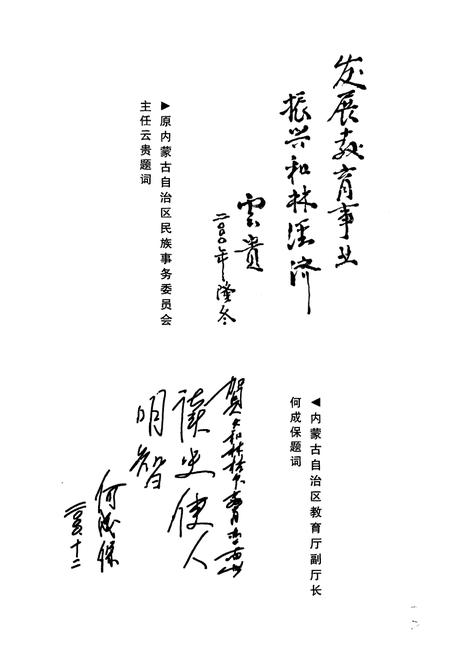 发展教育事业
振兴和林经济
雲贵
二〇〇〇年隆冬
▶原内蒙古自治区民族事务委员会
主任云贵题词
◀内蒙古自治区教育厅副厅长
何成保题词
賀
读史使人
明智
何成保
十二